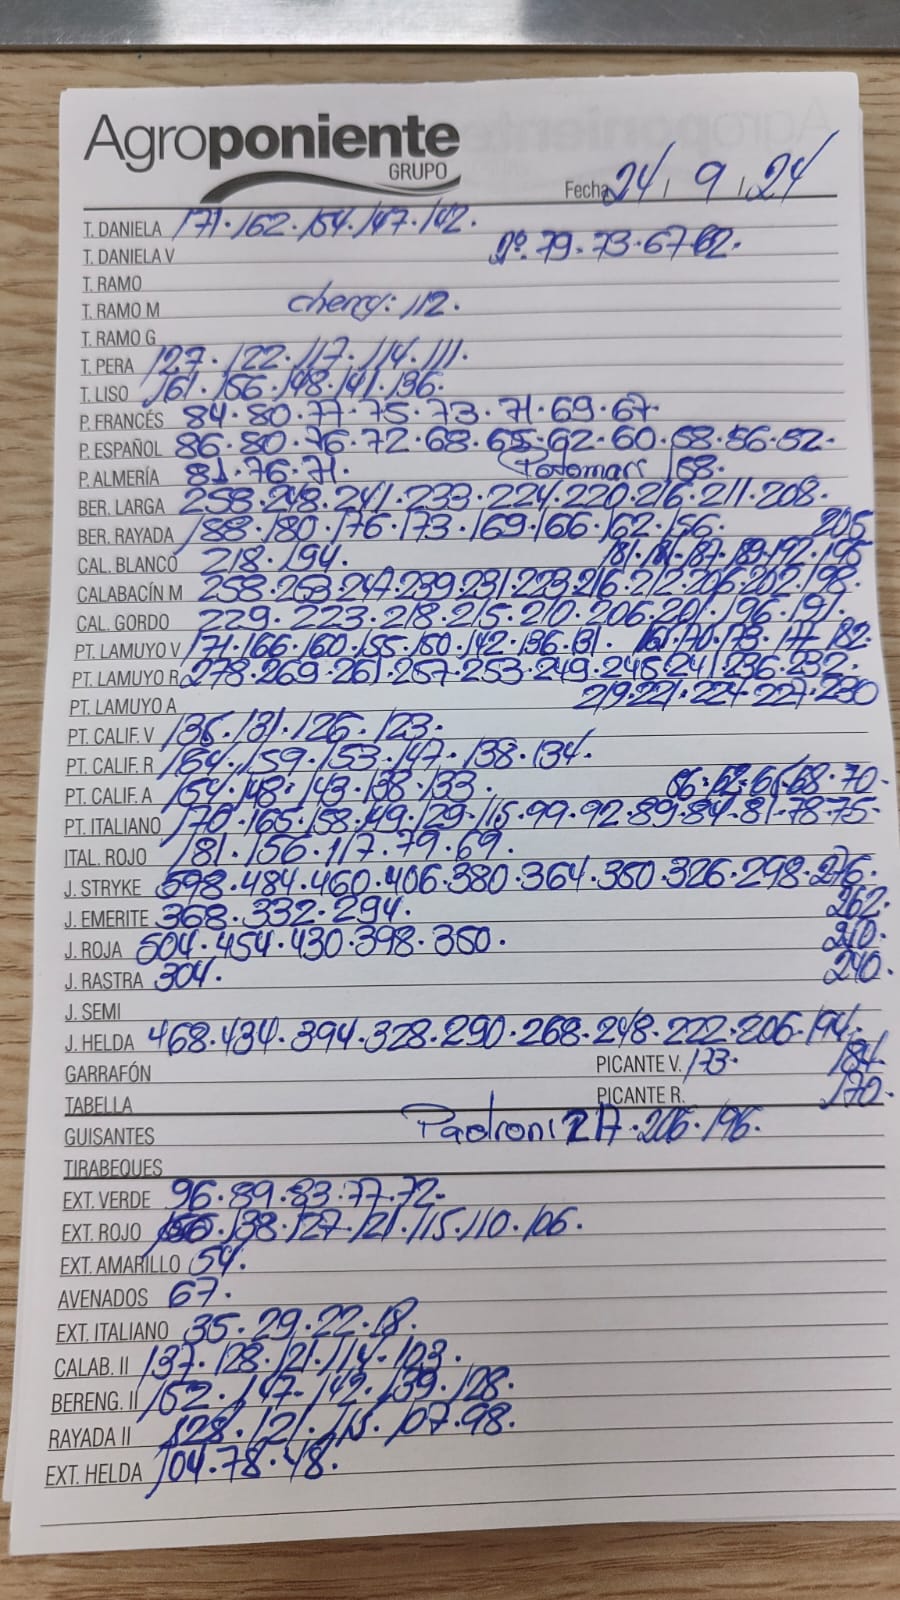 Agroponiente
GRUPO
Fecha 24 / 9 / 24
T. DANIELA 171. 162. 154. 147. 142.
T. DANIELA V 2º. 79. 73. 67. 62.
T. RAMO
T. RAMO M cherry: 112.
T. RAMO G
T. PERA 127. 122. 117. 114. 111.
T. LISO 161. 156. 148. 141. 136.
P. FRANCÉS 84. 80. 77. 75. 73. 71. 69. 67.
P. ESPAÑOL 86. 80. 76. 72. 68. 65. 62. 60. 58. 56. 52.
P. ALMERÍA 81. 76. 71. 158.
BER. LARGA 258. 248. 241. 233. 224. 220. 216. 211. 208.
205
BER. RAYADA 188. 180. 176. 173. 169. 166. 162. 156.
CAL. BLANCO 218. 194. 187. 189. 192. 195
CALABACÍN M 258. 253. 247. 239. 231. 223. 216. 212. 206. 202. 198.
CAL. GORDO 229. 223. 218. 215. 210. 206. 201. 196. 191.
PT. LAMUYO V 171. 166. 160. 155. 150. 142. 136. 131. 170. 173. 177. 182.
PT. LAMUYO R 278. 269. 261. 257. 253. 249. 245. 241. 236. 232.
PT. LAMUYO A 219. 221. 224. 227. 230
PT. CALIF. V 136. 131. 126. 123.
PT. CALIF. R 164. 159. 153. 147. 138. 134.
PT. CALIF. A 154. 148. 143. 138. 133. 62. 65. 68. 70.
PT. ITALIANO 170. 165. 158. 149. 129. 115. 99. 92. 89. 84. 81. 78. 75.
ITAL. ROJO 181. 156. 117. 79. 69.
J. STRYKE 598. 484. 460. 406. 380. 364. 350. 326. 298. 276.
J. EMERITE 368. 332. 294. 262.
J. ROJA 504. 454. 430. 398. 350. 210.
J. RASTRA 304. 240.
J. SEMI
J. HELDA 468. 434. 394. 328. 290. 268. 248. 222. 206. 194.
GARRAFÓN PICANTE V. 173. 184.
TABELLA PICANTE R. 170.
GUISANTES 217. 206. 196.
TIRABEQUES
EXT. VERDE 96. 89. 83. 77. 72.
EXT. ROJO 138. 127. 121. 115. 110. 106.
EXT. AMARILLO 54.
AVENADOS 67.
EXT. ITALIANO 35. 29. 22. 18.
CALAB. II 137. 128. 121. 114. 103.
BERENG. II 152. 147. 142. 139. 128.
RAYADA II 128. 121. 115. 107. 98.
EXT. HELDA 104. 78. 48.